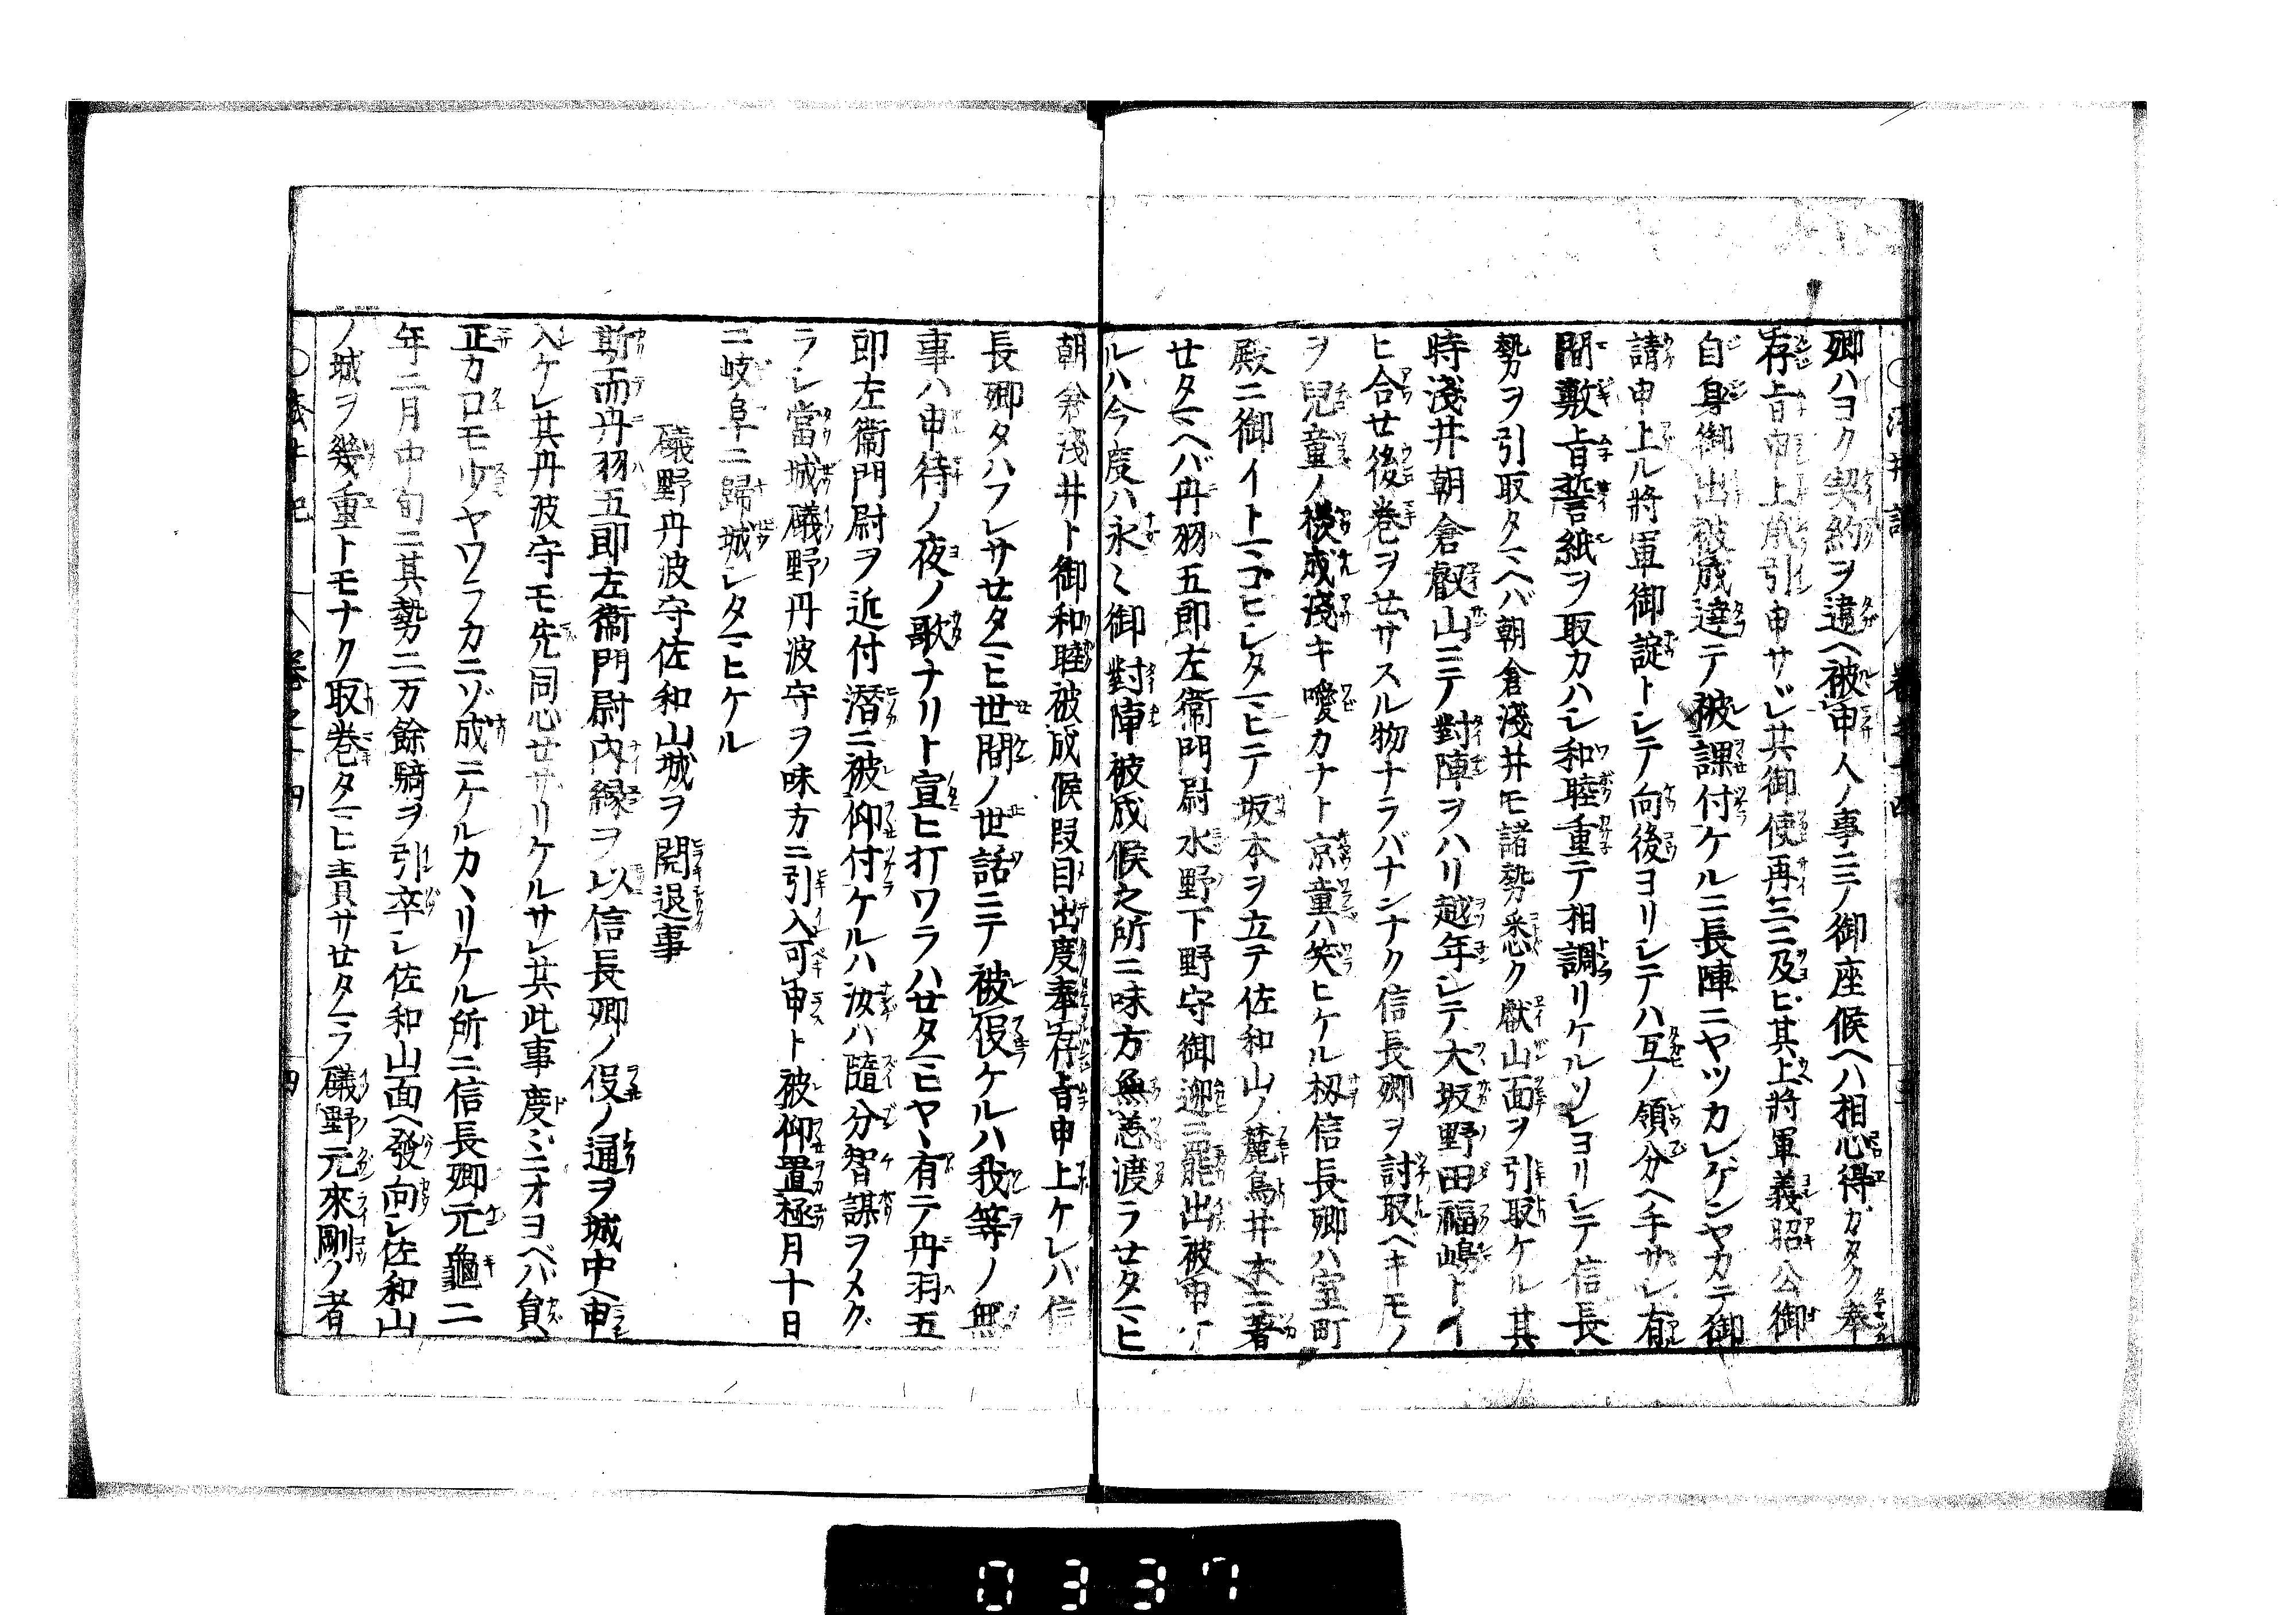 卿ハヨク契約ヲ違ヘ被申人ノ事ニテ御座候ヘハ相心得ガタク奉
存旨申上承引申サヾレ其御使再三ニ及ビ其上將軍義昭公御
自身御出被成達テ被課付ケルニ長陣ニヤツカレケンヤカテ御
請申上ル將軍御諚トシテ向後ヨリシテハ互ノ領分ヘ手サシ有
間敷旨誓紙ヲ取カハシ和睦重テ相調リケルソレヨリシテ信長
勢ヲ引取タマヘバ朝倉淺井モ諸勢悉ク叡山面ヲ引取ケル其
時淺井朝倉叡山ニテ對陣ヲハリ越年シテ大坂野田福嶋トイ
ヒ合セ後巻ヲセサスル物ナラバナンナク信長卿ヲ討取ベキモノ
ヲ兒童ノ様成淺キ噯カナト京童ハ笑ヒケル扨信長卿ハ室町
殿ニ御イトマゴヒシタマヒテ坂本ヲ立テ佐和山ノ麓鳥井本ニ着
セタマヘバ丹羽五郎左衞門尉水野下野守御迎ニ罷出被申
ルハ今度ハ永〻御對陣被成候之所ニ味方無恙渡ラセタマヒ
朝倉淺井ト御和睦被成候段目出度奉存旨申上ケレバ信
長卿タハフレサセタマヒ世間ノ世話ニテ被仰ケルハ我等ノ無
事ハ申待ノ夜ノ歌ナリト宣ヒ打ワラハセタマヒヤヽ有テ丹羽五
郎左衞門尉ヲ近付潜ニ被仰付ケルハ汝ハ隨分智謀ヲメグ
ラシ當城礒野丹波守ヲ味方ニ引入可申ト被仰置極月十日
ニ岐阜ニ歸城シタマヒケル
礒野丹波守佐和山城ヲ開退事
斯而丹羽五郎左衞門尉内縁ヲ以信長卿ノ仰ノ通ヲ城中ヘ申
入ケレ共丹波守モ先同心セサリケルサレ共此事度〻ニオヨベバ員
正カ口モ少ヤワラカニゾ成ニケルカヽリケル所ニ信長卿元龜二
年二月中旬ニ其勢二万餘騎ヲ引卒シ佐和山面ヘ發向シ佐和山
ノ城ヲ幾重トモナク取巻タマヒ責サセタマフ礒野元來剛ノ者